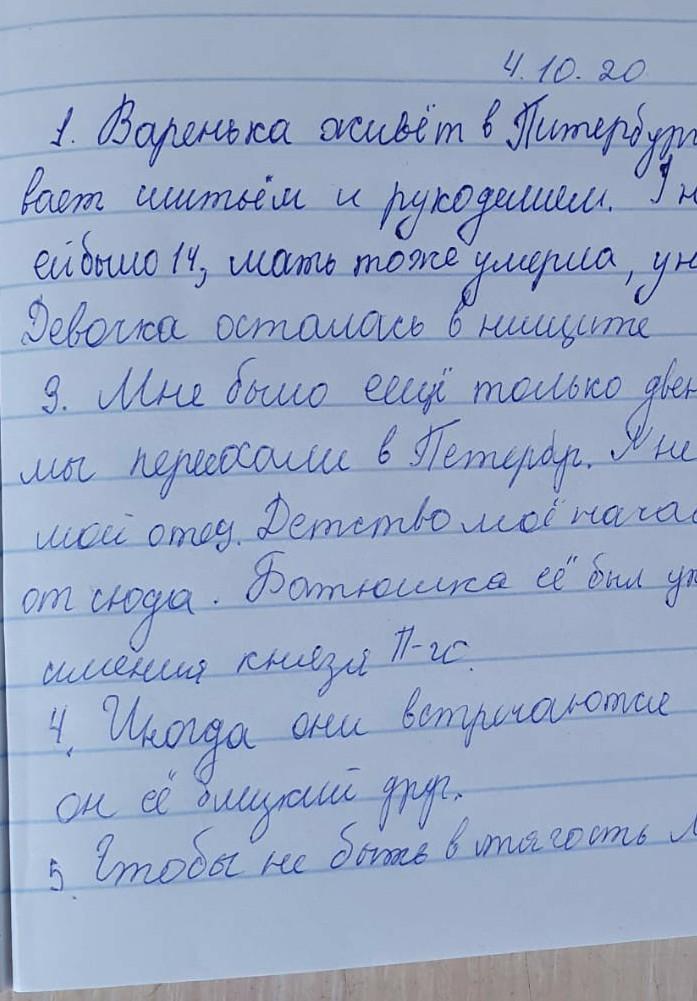 4.10.20
1. Варенька живёт в Питербург
вает шитьём и рукоделием.
ей было 14, мать тоже умерла, у н
Девочка осталась в нищите
3. Мне было ещё только двен
мы переехали в Петербр. Я не
мой отец. Детство моё начал
от сюда. Батюшка её был уп
имения князя П-го.
4. Иногда они встречаются
он её блиский друг.
5. Чтобы не быть в тягость